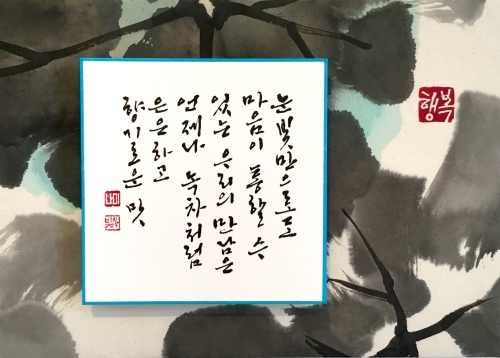 행복
눈빛만으로도
마음이 통할 수
있는 우리의 만남은
언제나 녹차처럼
은은하고
향기로운 맛